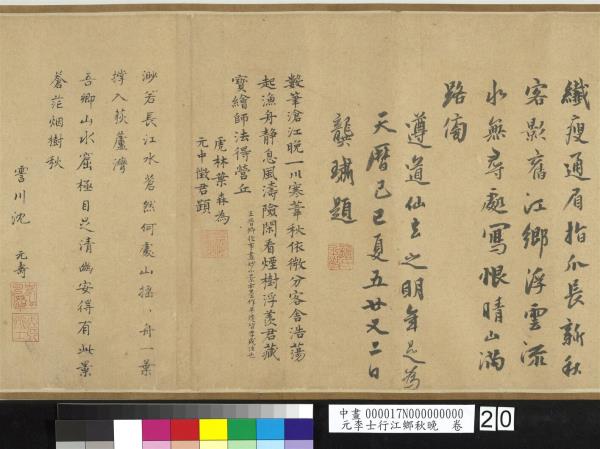 纖瘦通眉指爪長新秋
客影舊江鄉浮雲流
水無尋處寫恨晴山滿
路傍
遵道仙去之明年是為
天曆己巳夏五廿又二日
龔璛題
數筆滄江晚一川寒葦秋依微分客舍浩蕩
起漁舟靜息風濤險閑看煙樹浮羨君藏
寶繪師法得營丘
虎林葉森為
元中徵君題
渺若長江水蒼然何處山搖〻舟一葉
撐入荻蘆灣
吾鄉山水窟極目足清幽安得有此景
蒼茫烟樹秋
霅川沈 元壽
中畫 000017N000000000
元李士行江鄉秋晚 卷
20